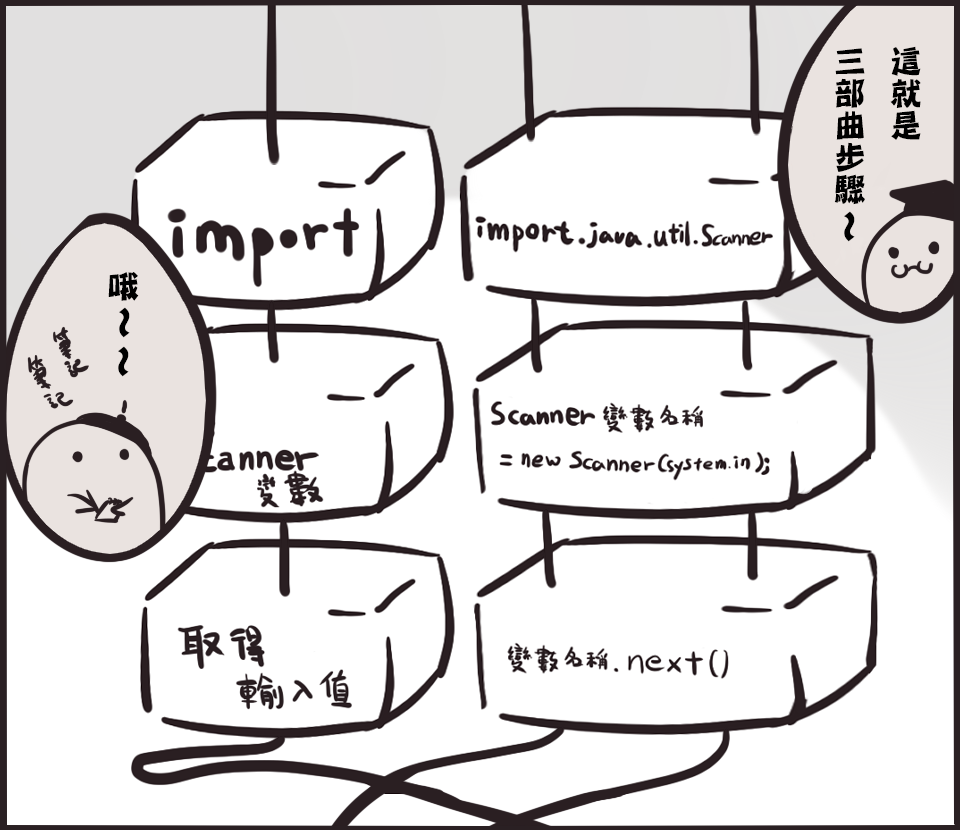 這就是
三部曲步驟~
import
import.java.util.Scanner
哦~~
筆記
筆記
canner
變數
Scanner 變數名稱
= new Scanner(system.in);
取得
輸入值
變數名稱.next()